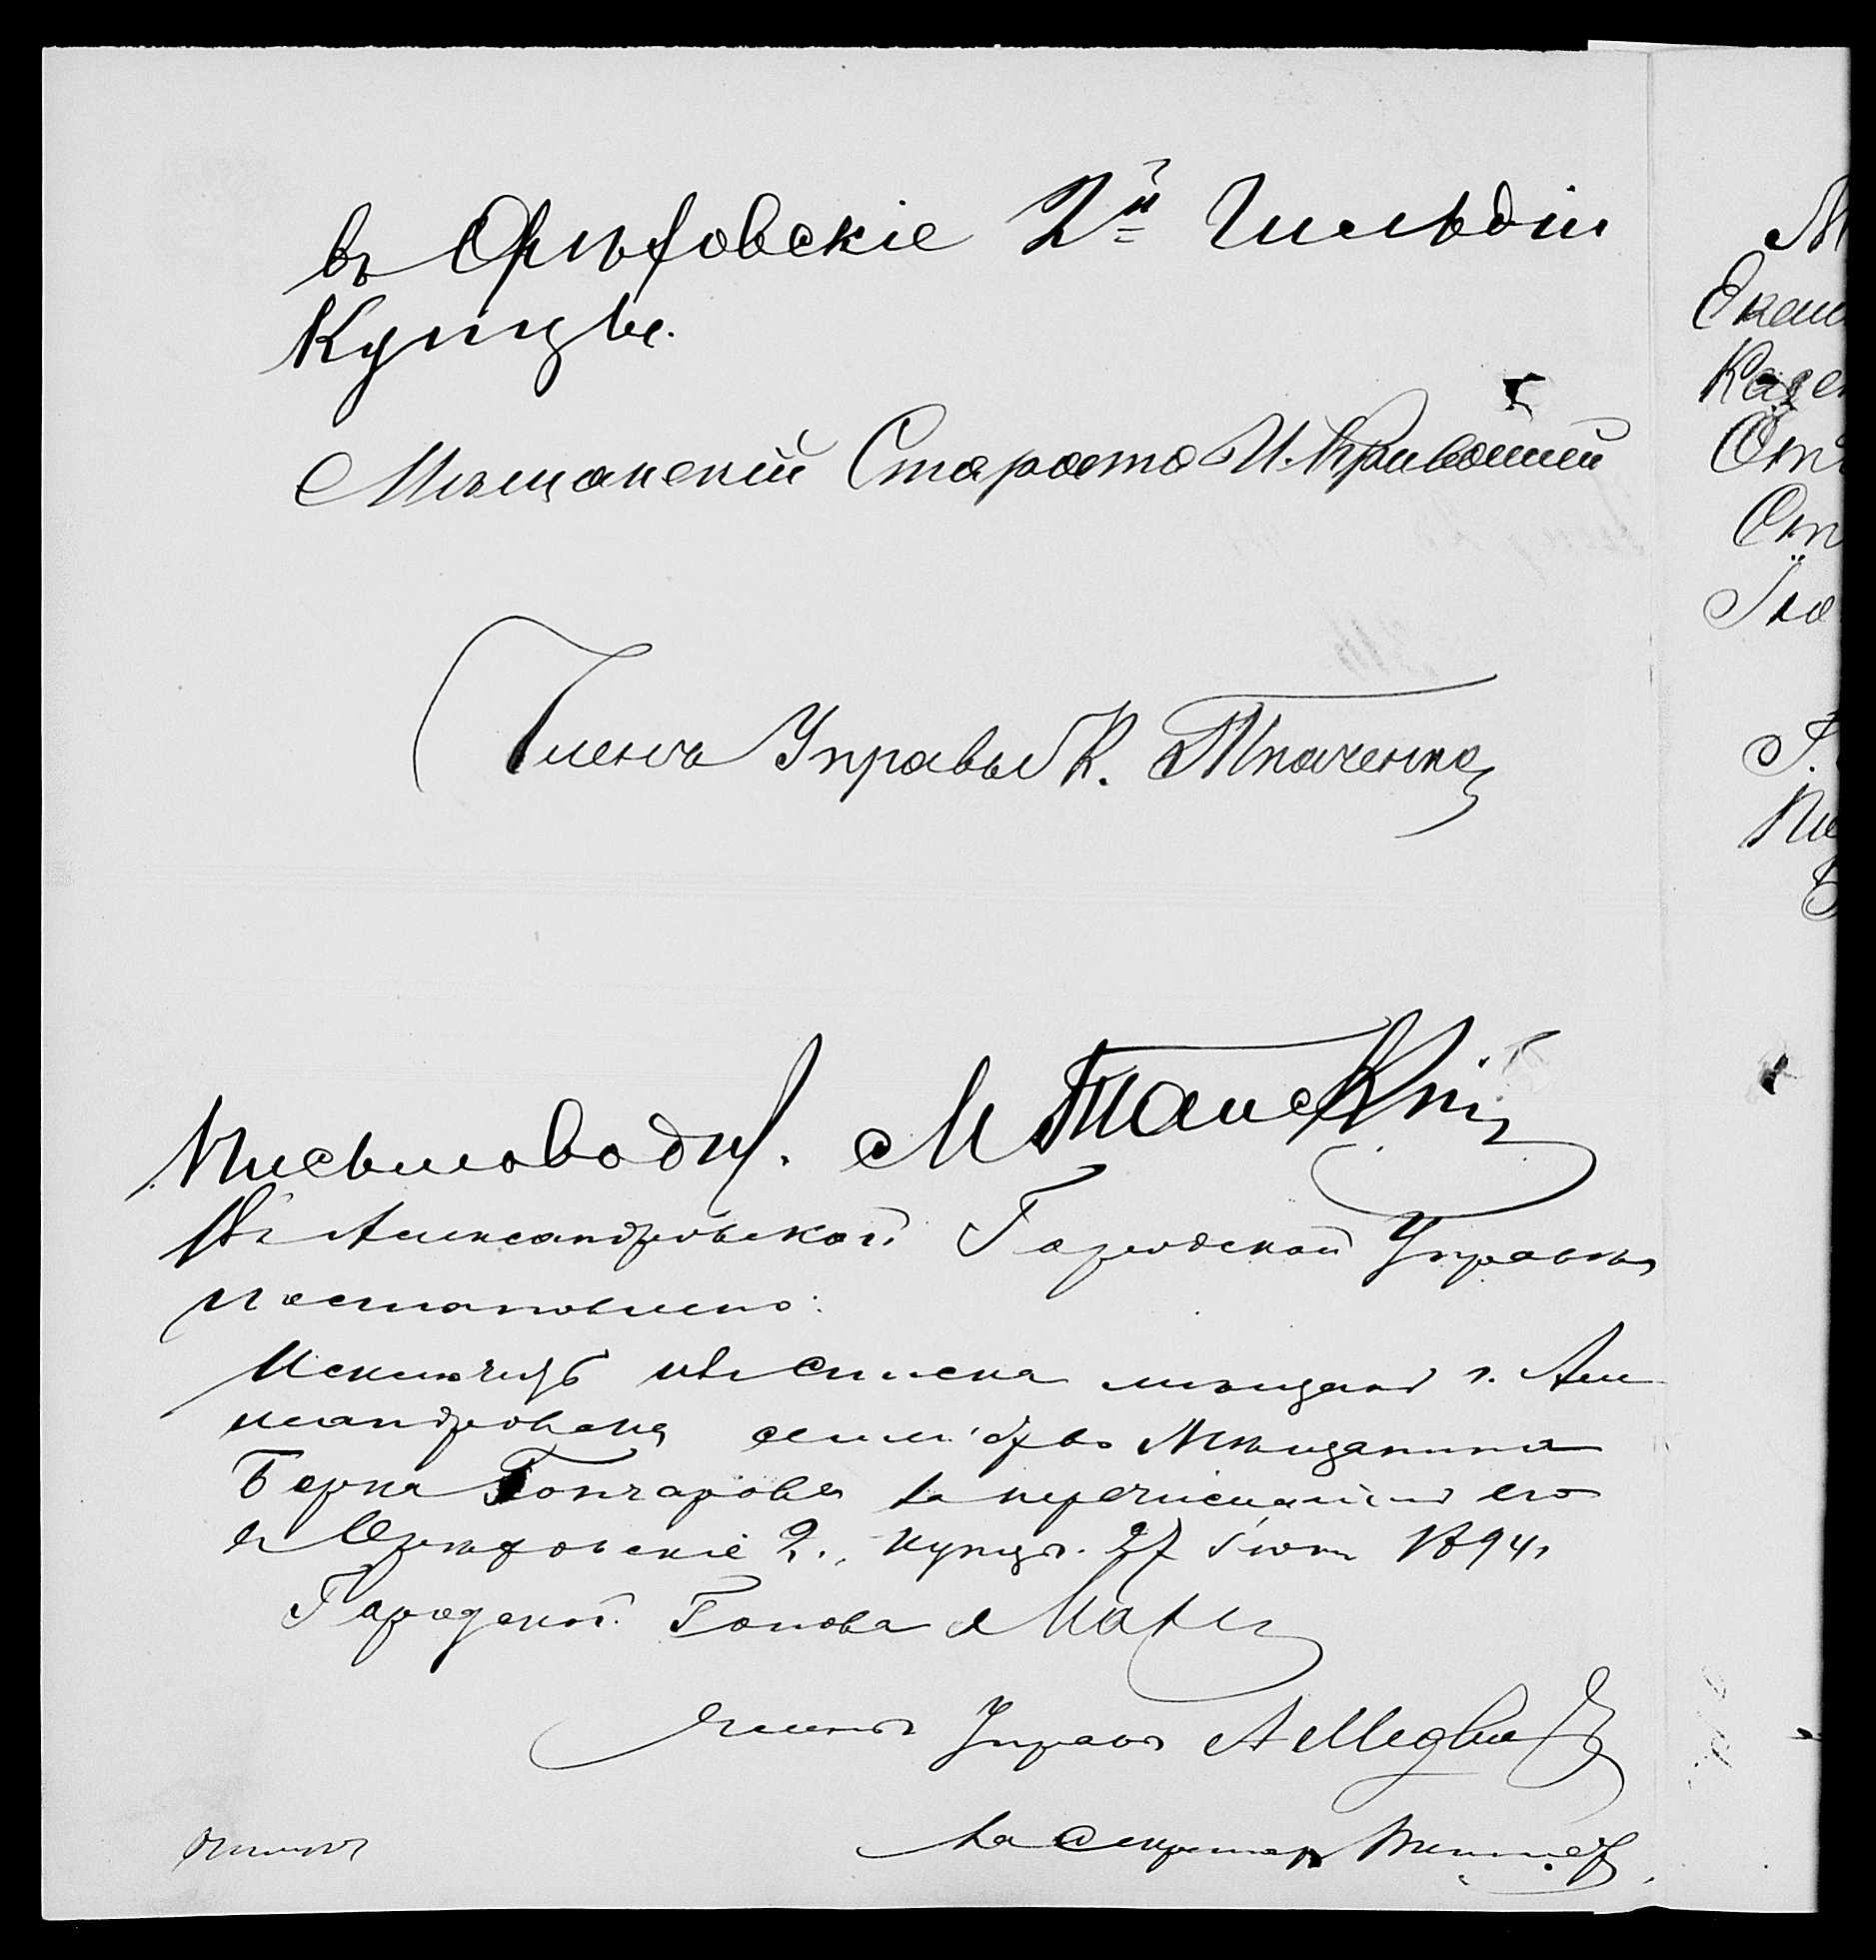 въ Орѣховскіе 2й Гильдіи
Купцы.
Мѣщанскій Староста И. Кривоший
Членъ Управы К. Ткаченко
Письмовод. М Таиский
Въ Александровской Городской Управѣ
постановлено:
Исключить изъ списка мѣщанъ г. Але
ксандровска семейство Мѣщанина
Берка Гончарова за перечисленіемъ его
въ Орѣховскіе 2. купцы. 27 Іюня 1894
Городской Голова
Членъ Управы А Медвѣ
За Секретаря
М
Екат
Казен
Отъ
От
П